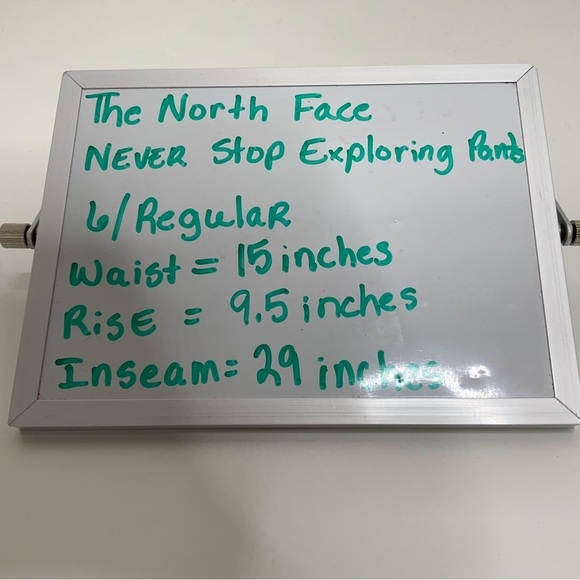 The North Face
NEVER Stop Exploring Pants
6/Regular
Waist = 15 inches
RiSE = 9.5 inches
Inseam = 29 inches